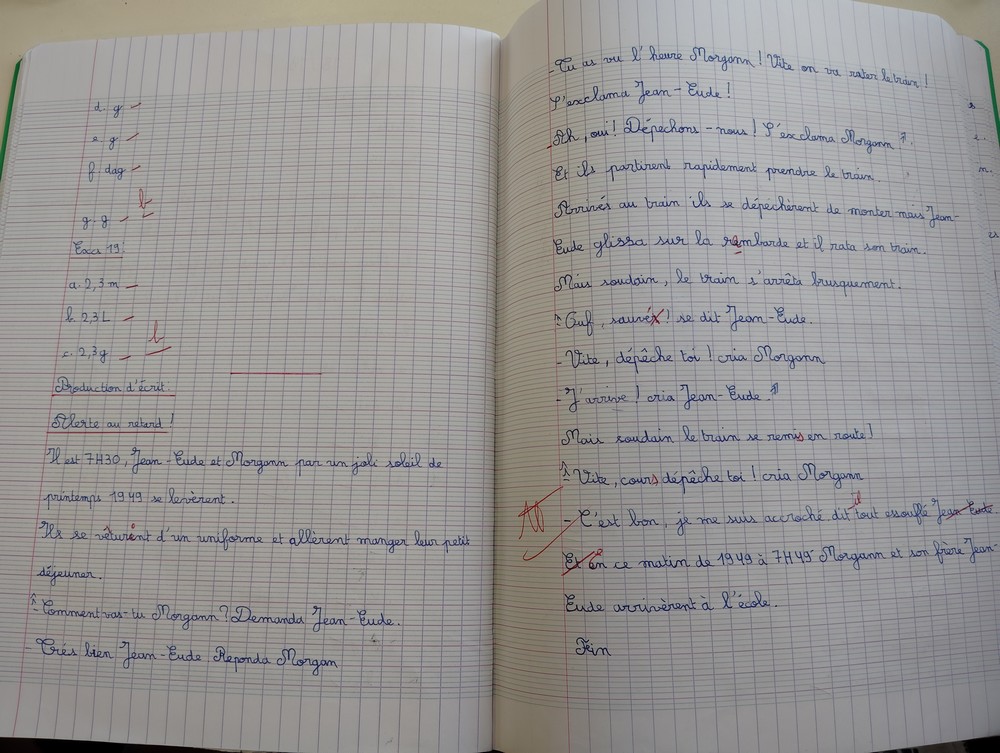 d. g
e. g
f. dag
g. g
b
Exos 19:
a. 2,3 m
b. 2,3 L
c. 2,3 g
b
Production d'écrit:
Alerte au retard !
Il est 7H30, Jean-Eude et Morgann par un joli soleil de
printemps 1949 se levèrent.
Ils se vêturent d'un uniforme et allèrent manger leur petit
déjeuner.
- Comment vas-tu Morgann ? Demanda Jean-Eude.
- Très bien Jean-Eude Reponda Morgan
- Tu as vu l'heure Morgann ! Vite on va rater le train !
S'exclama Jean-Eude !
- Ah, oui ! Dépechons-nous ! S'exclama Morgann.
Et ils partirent rapidement prendre le train.
Arrivés au train ils se dépéchèrent de monter mais Jean-
Eude glissa sur la rembarde et il rata son train.
Mais soudain, le train s'arrêta brusquement.
- Ouf, sauvé ! se dit Jean-Eude.
- Vite, dépêche toi ! cria Morgann
- J'arrive ! cria Jean-Eude.
Mais soudain le train se remis en route !
- Vite, cours dépêche toi ! cria Morgann
- C'est bon, je me suis accroché dit il tout essouflé Jean-Eude.
Et en ce matin de 1949 à 7H49 Morgann et son frère Jean-
Eude arrivèrent à l'école.
Fin